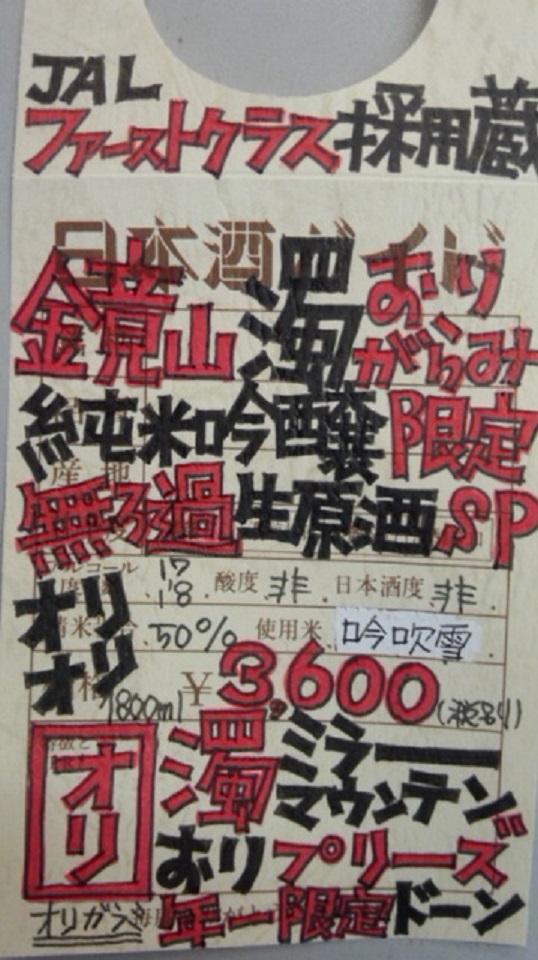 JAL
ファーストクラス採用蔵
日本酒ガイド
鏡山 濁 おりがらみ
純米吟醸 限定
産地
無ろ過生原酒 SP
オリ オリ
アルコール度 17 18 酸度 非 日本酒度 非
精米歩合 50% 使用米 吟吹雪
1800ml ¥ 3,600 (税別)
オリ 濁 ミラーマウンテンズ
おりプリーズ
オリガラ 年一限定ドーン